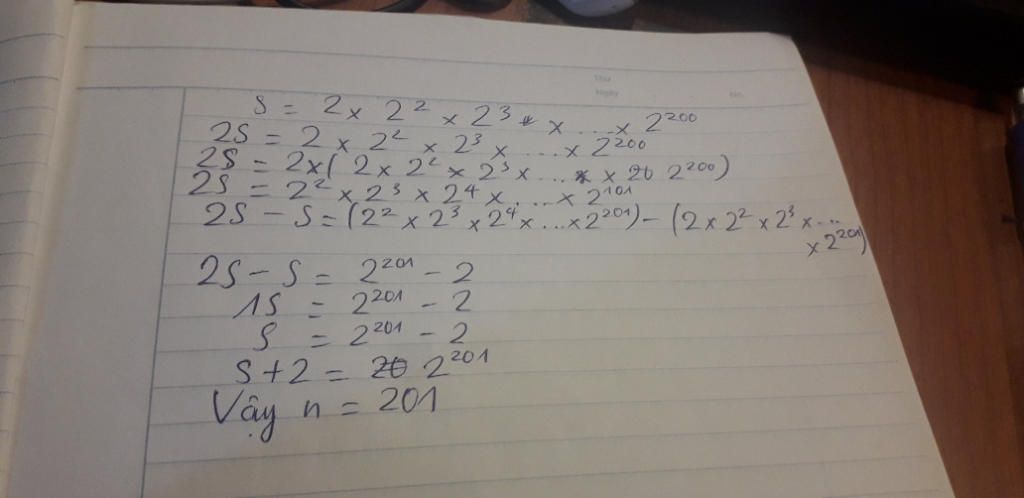 Thứ
Ngày No.
S = 2 × 2² × 2³ × ... × 2²⁰⁰
2S = 2 × 2² × 2³ × ... × 2²⁰⁰
2S = 2×( 2 × 2² × 2³ × ... × 2²⁰⁰)
2S = 2² × 2³ × 2⁴ × ... × 2¹⁰¹
2S - S = (2² × 2³ × 2⁴ × ... × 2²⁰¹) - (2 × 2² × 2³ × ...
× 2²⁰¹)
2S - S = 2²⁰¹ - 2
1S = 2²⁰¹ - 2
S = 2²⁰¹ - 2
S + 2 = 2²⁰¹
Vậy n = 201